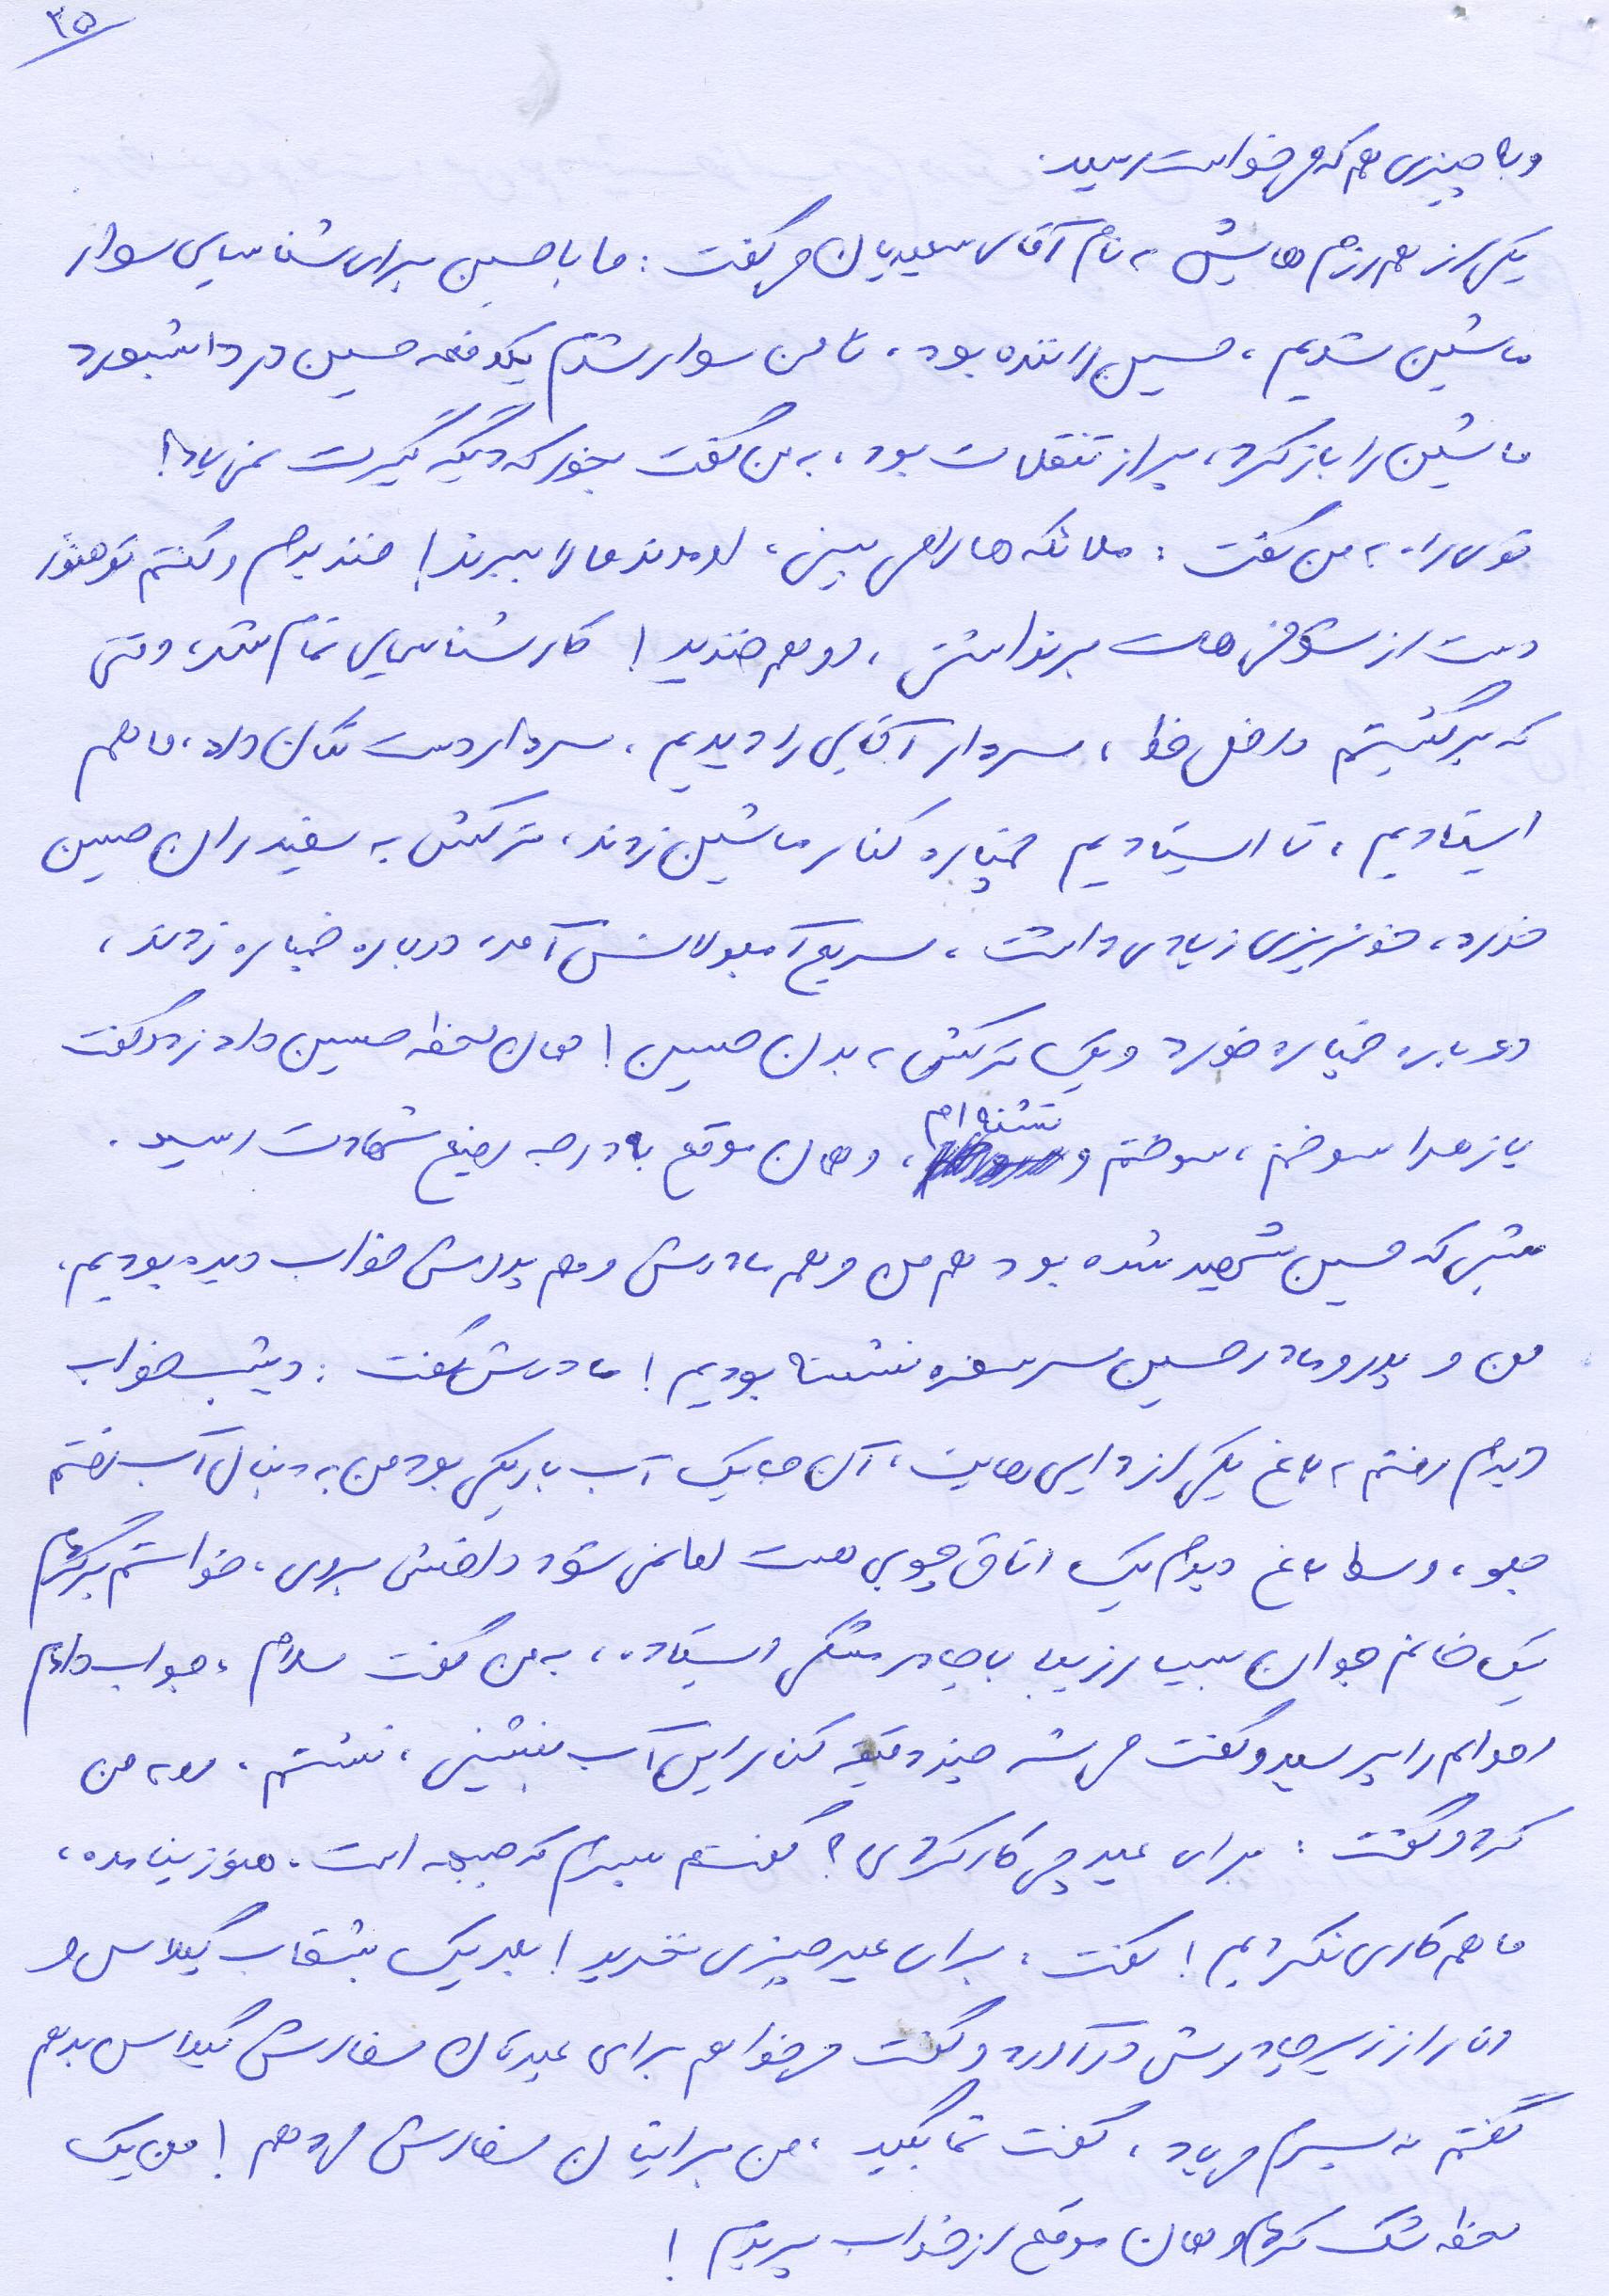 ۳۵
و به چیزی هم که می خواست رسید.
یکی از هم رزم هایش به نام آقای سعیدیان می گفت: ما با حسین برای شناسایی سوار
ماشین شدیم، حسین راننده بود، تا من سوار شدم یکدفعه حسین در داشبورد
ماشین را باز کرد، پر از تنقلات بود، به من گفت بخور که دیگه گیرت نمی یاد!
توی راه به من گفت: ملائکه ها را می بینی، اومدند ما را ببرند! خندیدم و گفتم تو هنوز
دست از شوخی هات برنداشتی، اوهم خندید! کار شناسایی تمام شد، وقتی
که برگشتیم داخل خط، سردار آقایی را دیدیم، سردار دست تکان داد، ما هم
ایستادیم، تا ایستادیم خمپاره کنار ماشین زدند، ترکش به سفید ران حسین
خورد، خونریزی زیادی داشت، سریع آمبولانس آمد، دوباره خمپاره زدند،
دوباره خمپاره خورد و یک ترکش به بدن حسین! همان لحظه حسین داد زد و گفت
یا زهرا سوختم، سوختم و تشنه ام، و همان موقع به درجه رفیع شهادت رسید.
شبی که حسین شهید شده بود هم من و هم مادرش و هم پدرش خواب دیده بودیم.
من و پدر و مادر حسین سر سفره نشسته بودیم! مادرش گفت: دیشب خواب
دیدم رفتم به باغ یکی از دایی هایت، آن جا یک آب باریکی بود من به دنبال آب رفتم
جلو، وسط باغ دیدم یک اتاق چوبی هست اما نمی شود داخلش بروی، خواستم برگردم
یک خانم جوان بسیار زیبا با چادر مشکی ایستاده، به من گفت سلام، جواب دادم
احوالم را پرسید و گفت می شه چند دقیقه کنار این آب بنشینی، نشستم. رو به من
کرد و گفت: برای عید چی کار کردی؟ گفتم پسرم که جبهه است. هنوز نیامده،
ما هم کاری نکردیم! گفت: برای عید چیزی نخرید! بعد یک بشقاب گیلاس و
انار از زیر چادرش در آورد و گفت می خواهم برای عیدتان سفارش گیلاس بدهم
گفتم نه پسرم می یاد، گفت شما بگید، من برایتان سفارش می دهم! من یک
لحظه شک کردم و همان موقع از خواب پریدم!